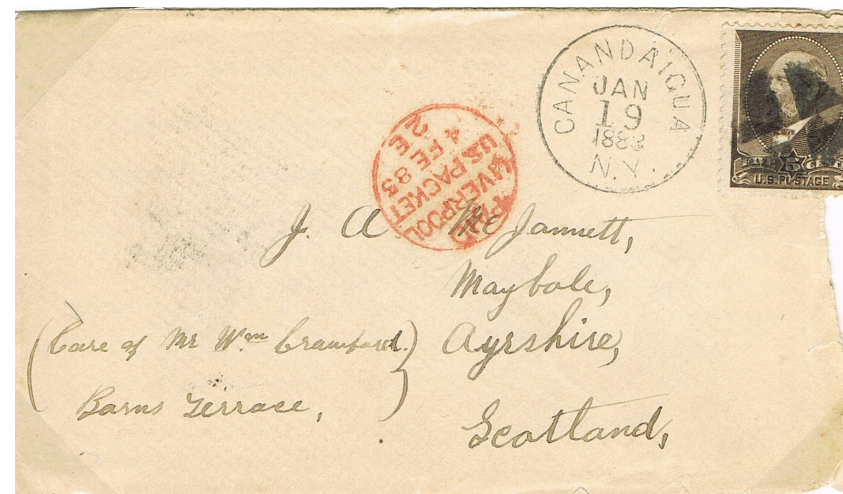 CANANDAIGUA
JAN
19
1883
N.Y.
U.S. POSTAGE
PAID
LIVERPOOL
US PACKET
4 FE 83
2 E
J. A. Mc Jannett,
Maybole,
Ayrshire,
Scotland,
(Care of Mr Wm Crawford.)
Barns Terrace,